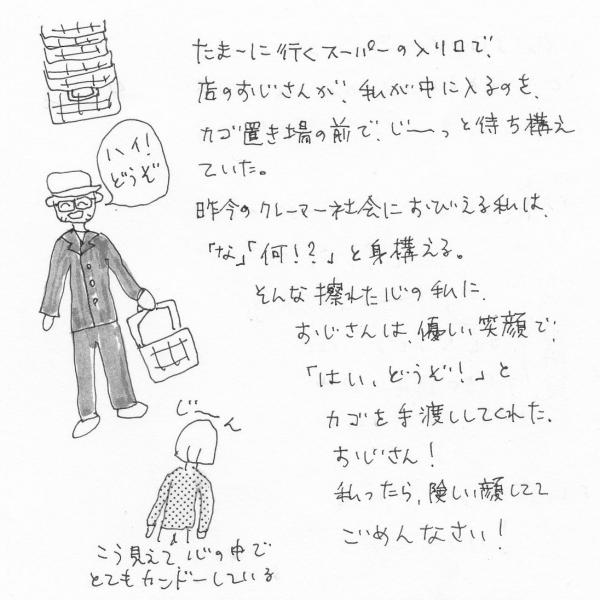 たまーに行くスーパーの入り口で、
店のおじさんが、私が中に入るのを、
カゴ置き場の前で、じ〜っと待ち構え
ていた。
昨今のクレーマー社会におびえる私は、
「な」「何!?」と身構える。
そんな擦れた心の私に、
おじさんは、優しい笑顔で、
「はい、どうぞ!」と
カゴを手渡ししてくれた。
おじさん!
私ったら、険しい顔してて
ごめんなさい!
ハイ!
どうぞ
じ〜ん
こう見えて、心の中で
とてもカンドーしている